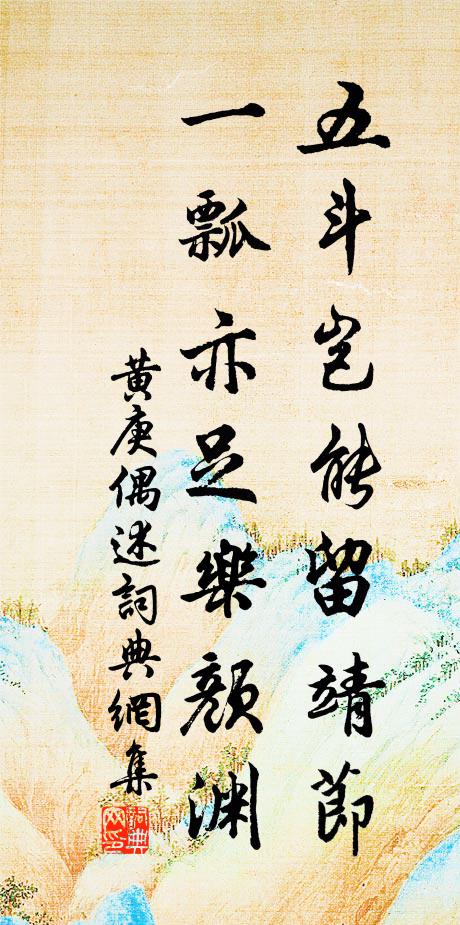 五斗岂能留靖節
一瓢亦足樂顏渊
黄庚偶述詞典網集
詞典
网印